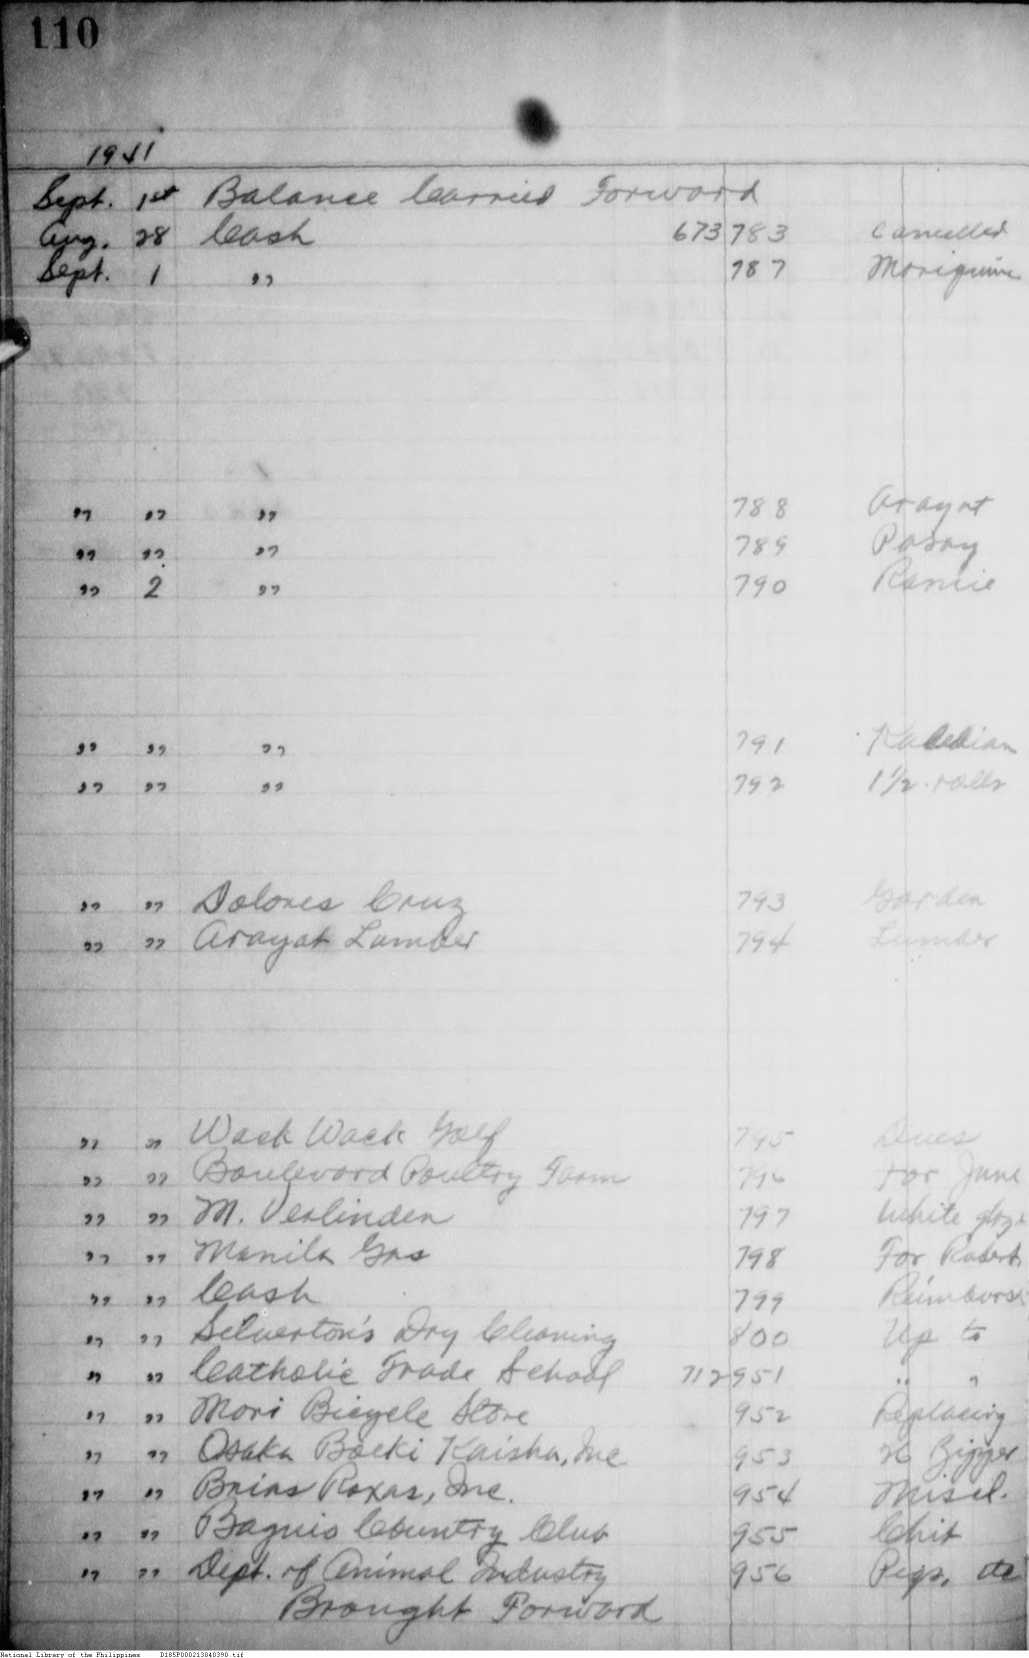 110
1941
Sept. 1st Balance Carried Forward
Aug. 28 Cash 673 783 Cancelled
Sept. 1 " 787
" " " 788 Arayat
" " " 789 Pasay
" 2 " 790
" " " 791
" " " 792 1 1/2 rolls
" " Dolores Cruz 793 Garden
" " Arayat Lumber 794 Lumber
" " Wack Wack Golf 795 Dues
" " Boulevard Poultry Farm 796 For June
" " M. Verlinden 797 White
" " Manila Gas 798 For Robert
" " Cash 799
" " Silverton's Dry Cleaning 800 Up to
" " Catholic Trade School 712 951 " "
" " Mori Bicycle Store 952 Replacing
" " Osaka Boeki Kaisha, Inc 953 Zipper
" " Brias Roxas, Inc. 954 Miscl.
" " Baguio Country Club 955 Chit
" " Dept. of Animal Industry 956 Pigs, etc
Brought Forward
National Library of the Philippines D185P000213040390.tif